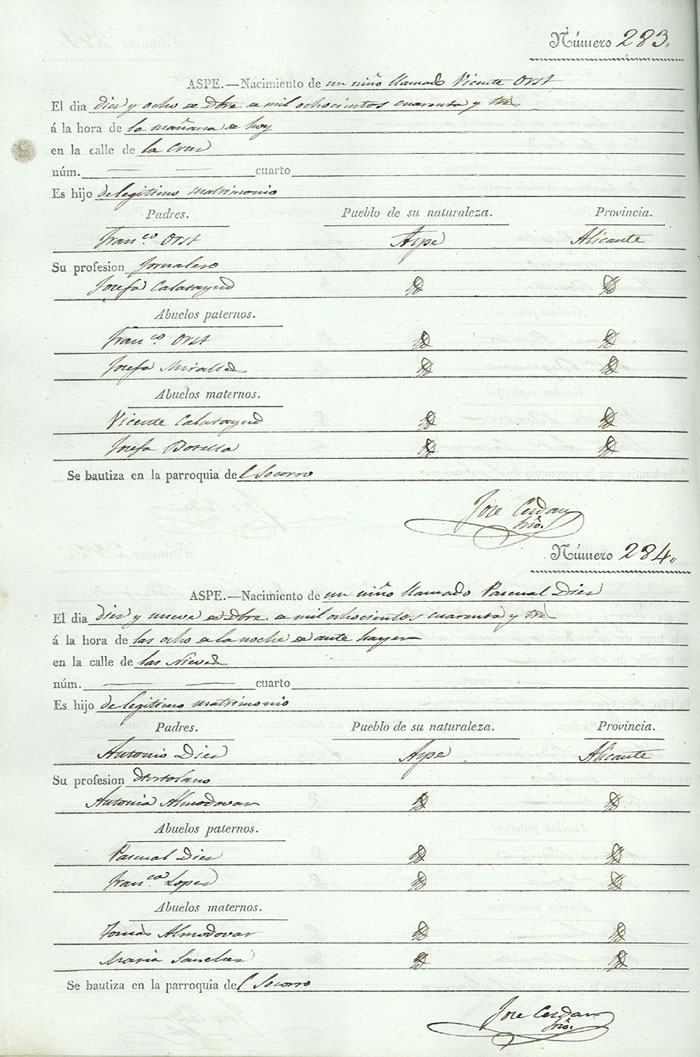 Número 283.
ASPE.—Nacimiento de un niño llamado Vicente Orst
El dia diez y ocho de Dbre. de mil ochocientos cuarenta y tres
á la hora de la mañana de hoy
en la calle de la Cruz
núm. cuarto
Es hijo de legitimo matrimonio
Padres. Pueblo de su naturaleza. Provincia.
Franco. Orst Aspe Alicante
Su profesion Jornalero
Josefa Calatayud
Abuelos paternos.
Franco. Orst
Josefa Miralles
Abuelos maternos.
Vicente Calatayud
Josefa Botella
Se bautiza en la parroquia del Socorro
Jose Cerdan
Número 284.
ASPE.—Nacimiento de un niño llamado Pascual Diez
El dia diez y nueve de Dbre. de mil ochocientos cuarenta y tres
á la hora de las ocho de la noche de ante hayer
en la calle de las Nieves
núm. cuarto
Es hijo de legitimo matrimonio
Padres. Pueblo de su naturaleza. Provincia.
Antonio Diez Aspe Alicante
Su profesion Hortolano
Antonia Almodovar
Abuelos paternos.
Pascual Diez
Franca. Lopez
Abuelos maternos.
Tomás Almodovar
Maria Sanchez
Se bautiza en la parroquia del Socorro
Jose Cerdan